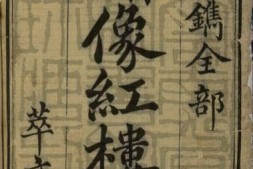 鐫全部
像紅樓
萃